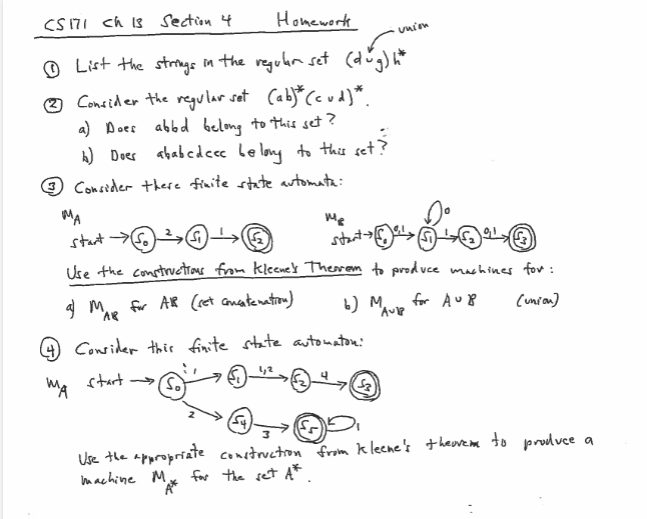 CS171 Ch 13 Section 4 Homework
union
① List the strings in the regular set (d∪g)h*
② Consider the regular set (ab)*(c∪d)*.
a) Does abbd belong to this set?
b) Does ababcdccc belong to this set?
③ Consider these finite state automata:
M_A
start → S₀ 2 S₁ 1 S₂
M_B
start → S₀ 0,1 S₁ 0 1 S₂ 0,1 S₃
Use the constructions from Kleene's Theorem to produce machines for:
a) M_AB for AB (set concatenation) b) M_A∪B for A∪B (union)
④ Consider this finite state automaton:
M_A start → S₀ 1 S₁ 1,2 S₂ 4 S₃
2 S₄ 3 S₅ 1
Use the appropriate construction from Kleene's theorem to produce a
machine M_A* for the set A*.